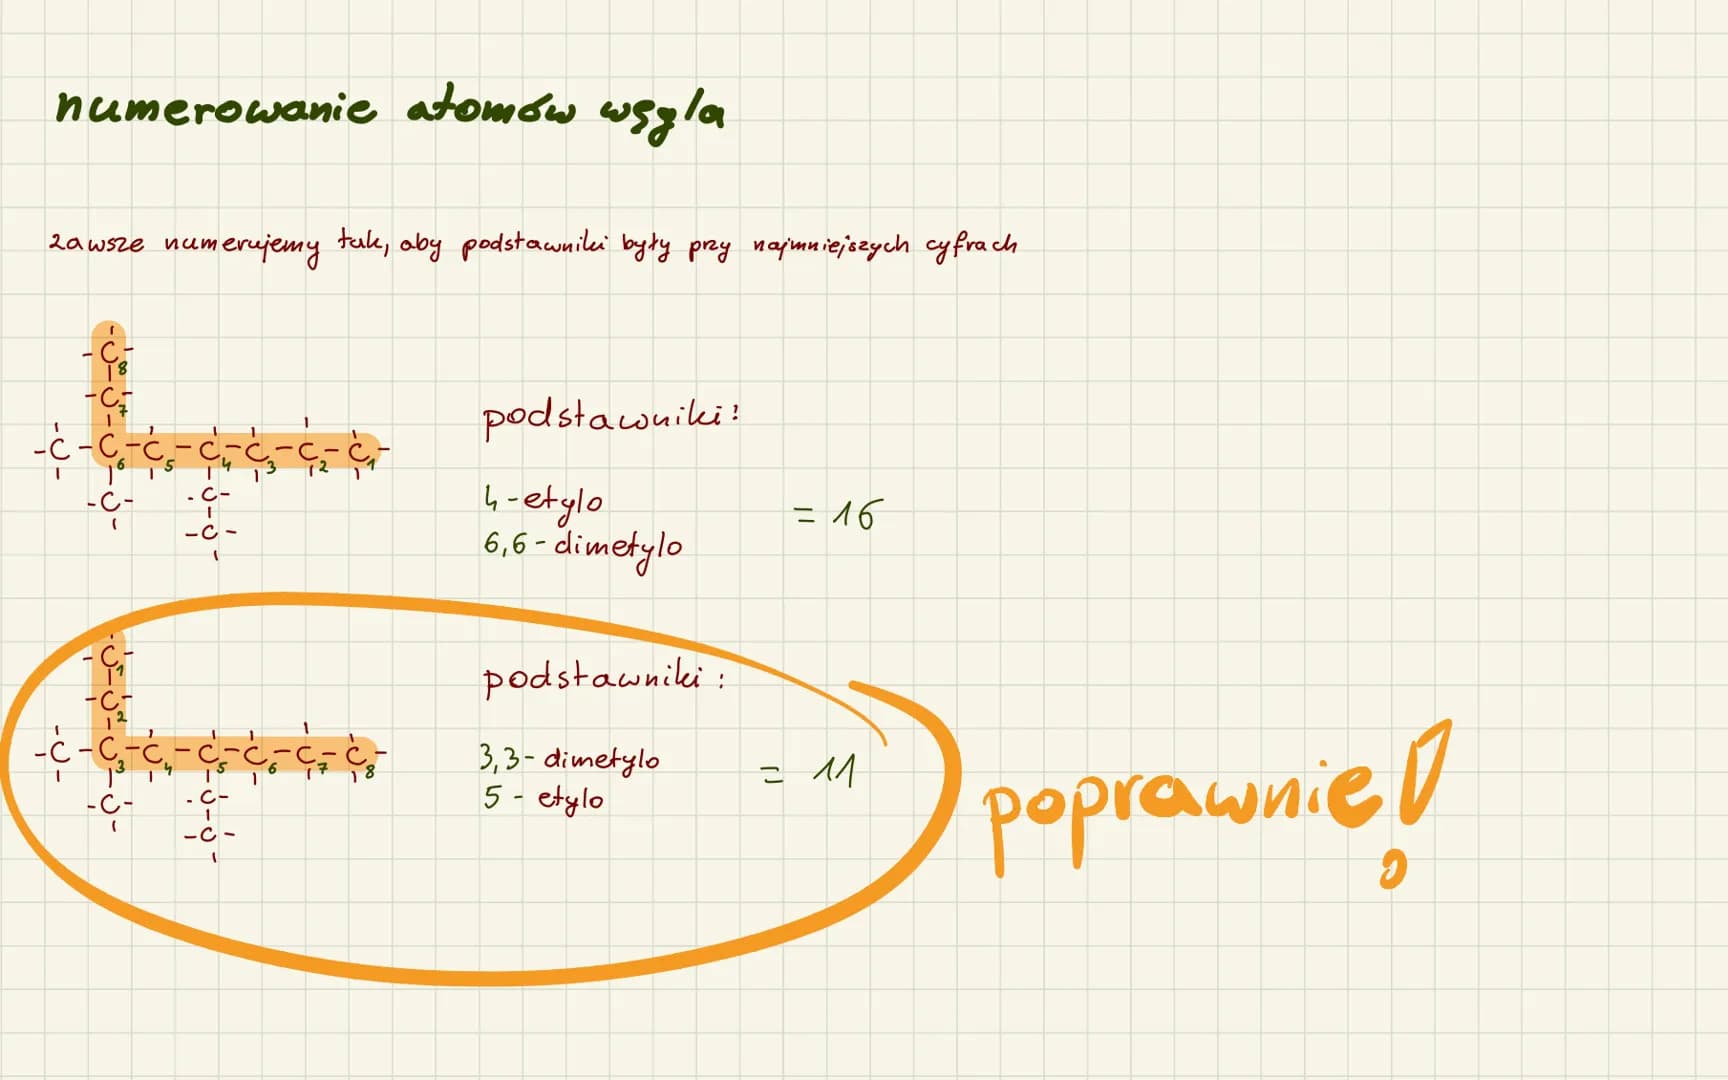 numerowanie atomów węgla
zawsze numerujemy tak, aby podstawniki były przy najmniejszych cyfrach
-C-
8
-C-
7
-C-C-C-C-C-C-C-
6 5 4 3 2 1
-C- -C-
-C-
podstawniki:
4-etylo
6,6-dimetylo
= 16
-C-
1
-C-
2
-C-C-C-C-C-C-C-
3 4 5 6 7 8
-C- -C-
-C-
podstawniki:
3,3-dimetylo
5 - etylo
= 11
poprawnie!